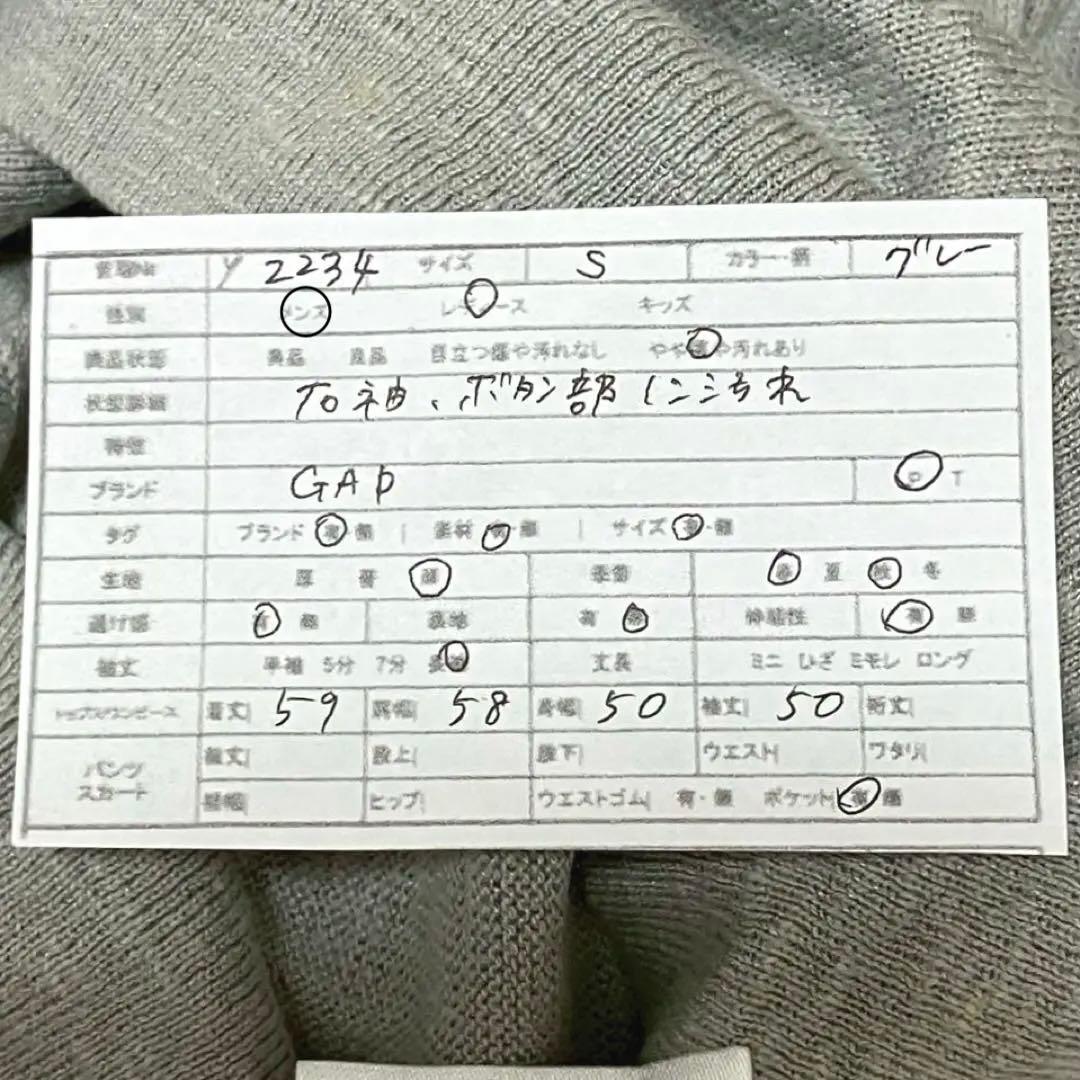 管理No Y 2234 サイズ S カラー・柄 グレー
種類 メンズ レディース キッズ
商品状態 美品 良品 目立つ傷や汚れなし やや傷や汚れあり
状態詳細 右袖、ボタン部にシミ汚れ
特徴
ブランド GAP T
タグ ブランド 有・無 | 素材 有・無 | サイズ 有・無
生地 厚 普 薄 季節 春 夏 秋 冬
透け感 有 無 裏地 有 無 伸縮性 有 無
袖丈 半袖 5分 7分 長袖 丈長 ミニ ひざ ミモレ ロング
トップス/ワンピース 着丈 59 肩幅 58 身幅 50 袖丈 50 裄丈
パンツ スカート 総丈 股上 股下 ウエスト ワタリ
裾幅 ヒップ ウエストゴム 有・無 ポケット 有 無